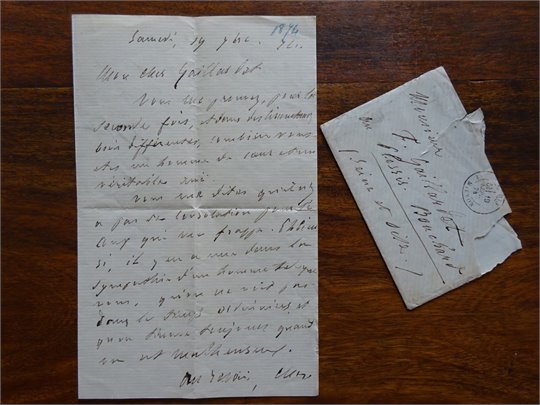 1876
Samedi, 19 7bre 76.
Mon cher Gaillardet
Vous me prouvez, pour la
seconde fois, et dans des circonstances
bien différentes, combien vous
êtes un homme de cœur et un
véritable ami.
Vous me dites qu'il n'y
a pas de consolation pour le
coup qui me frappe. Eh bien
si, il y en a une dans la
sympathie d'un homme tel que
vous, qu'on ne voit pas
dans le temps et
qu'on trouve toujours quand
on est malheureux.
Au revoir, cher
Monsieur
F. Gaillardet
au Plessis-Bouchard
(Seine et Oise)